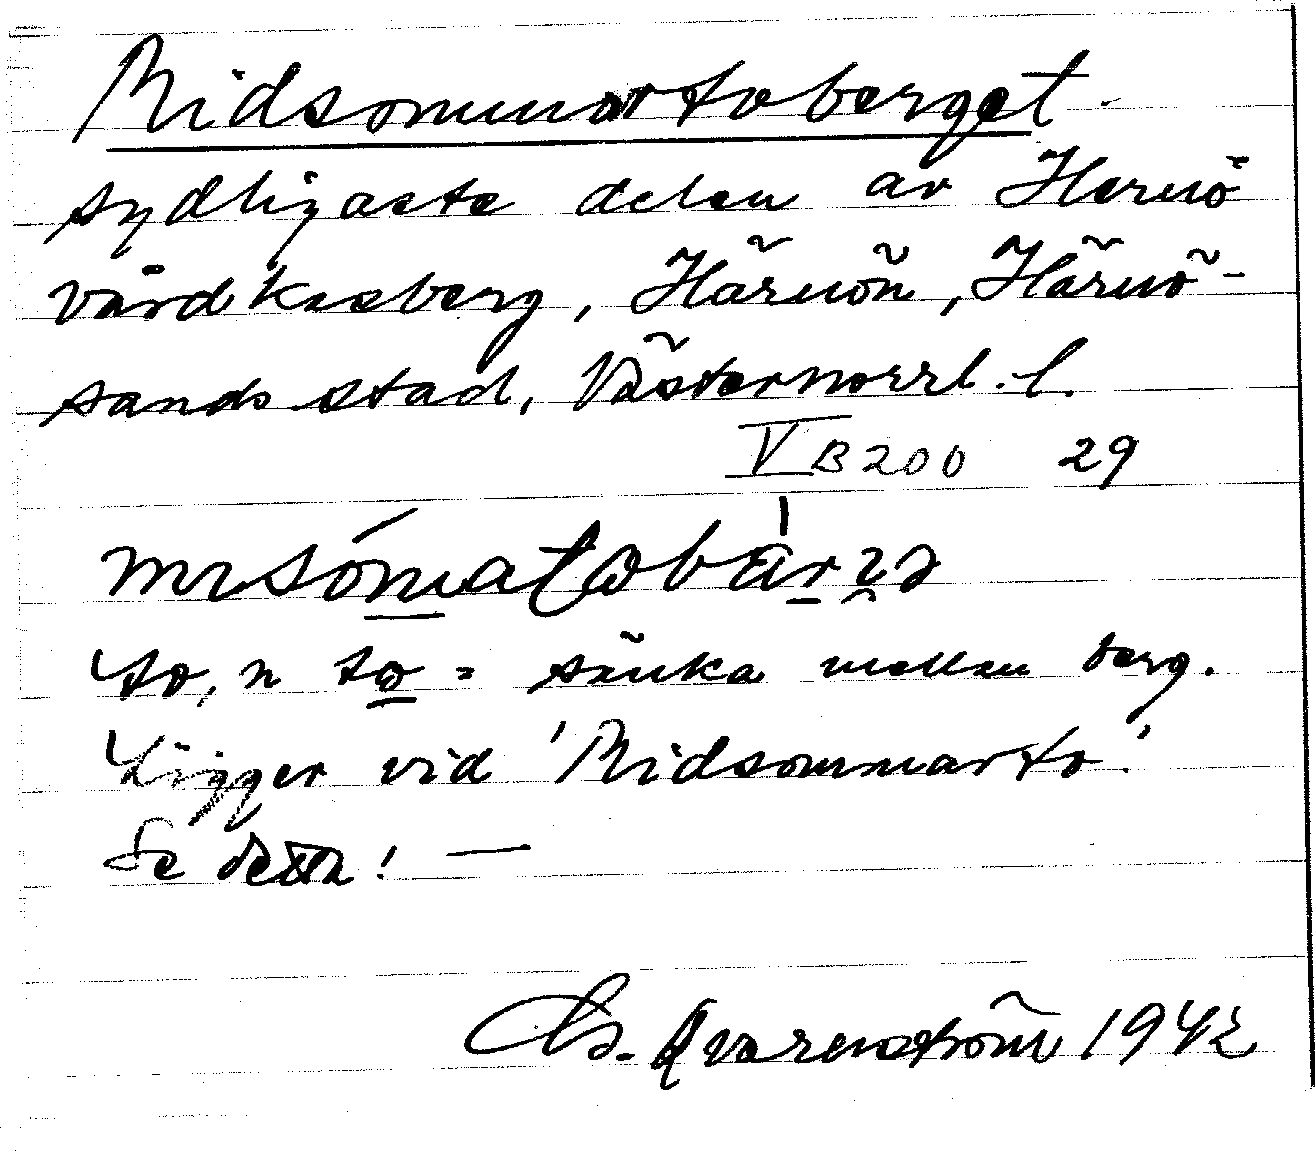 Midsommartoberget
sydligaste delen av Hernö
vårdkasberg, Härnön, Härnö-
sands stad, Västernorrl. l.
V B 200 29
to, n = sänka mellan berg.
Ligger vid 'Midsommarto'.
Se detta! —
Qvarnström 1942